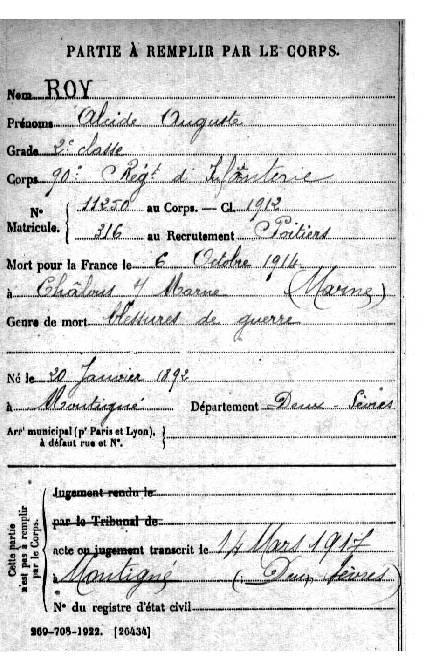 PARTIE À REMPLIR PAR LE CORPS.
Nom ROY
Prénoms Alcide Auguste
Grade 2e classe
Corps 90e Régt d'Infanterie
N° Matricule. { 11250 au Corps. — Cl. 1912
316 au Recrutement Poitiers
Mort pour la France le 6 Octobre 1914
à Châlons s/ Marne (Marne)
Genre de mort blessures de guerre
Né le 20 Janvier 1892
à Montigné Département Deux-Sèvres
Arrt municipal (pr Paris et Lyon), à défaut rue et N°. }
Cette partie n'est pas à remplir par le Corps.
Jugement rendu le
par le Tribunal de
acte ou jugement transcrit le 14 Mars 1917
à Montigné (Deux Sèvres)
N° du registre d'état civil
269-708-1922. [26434]